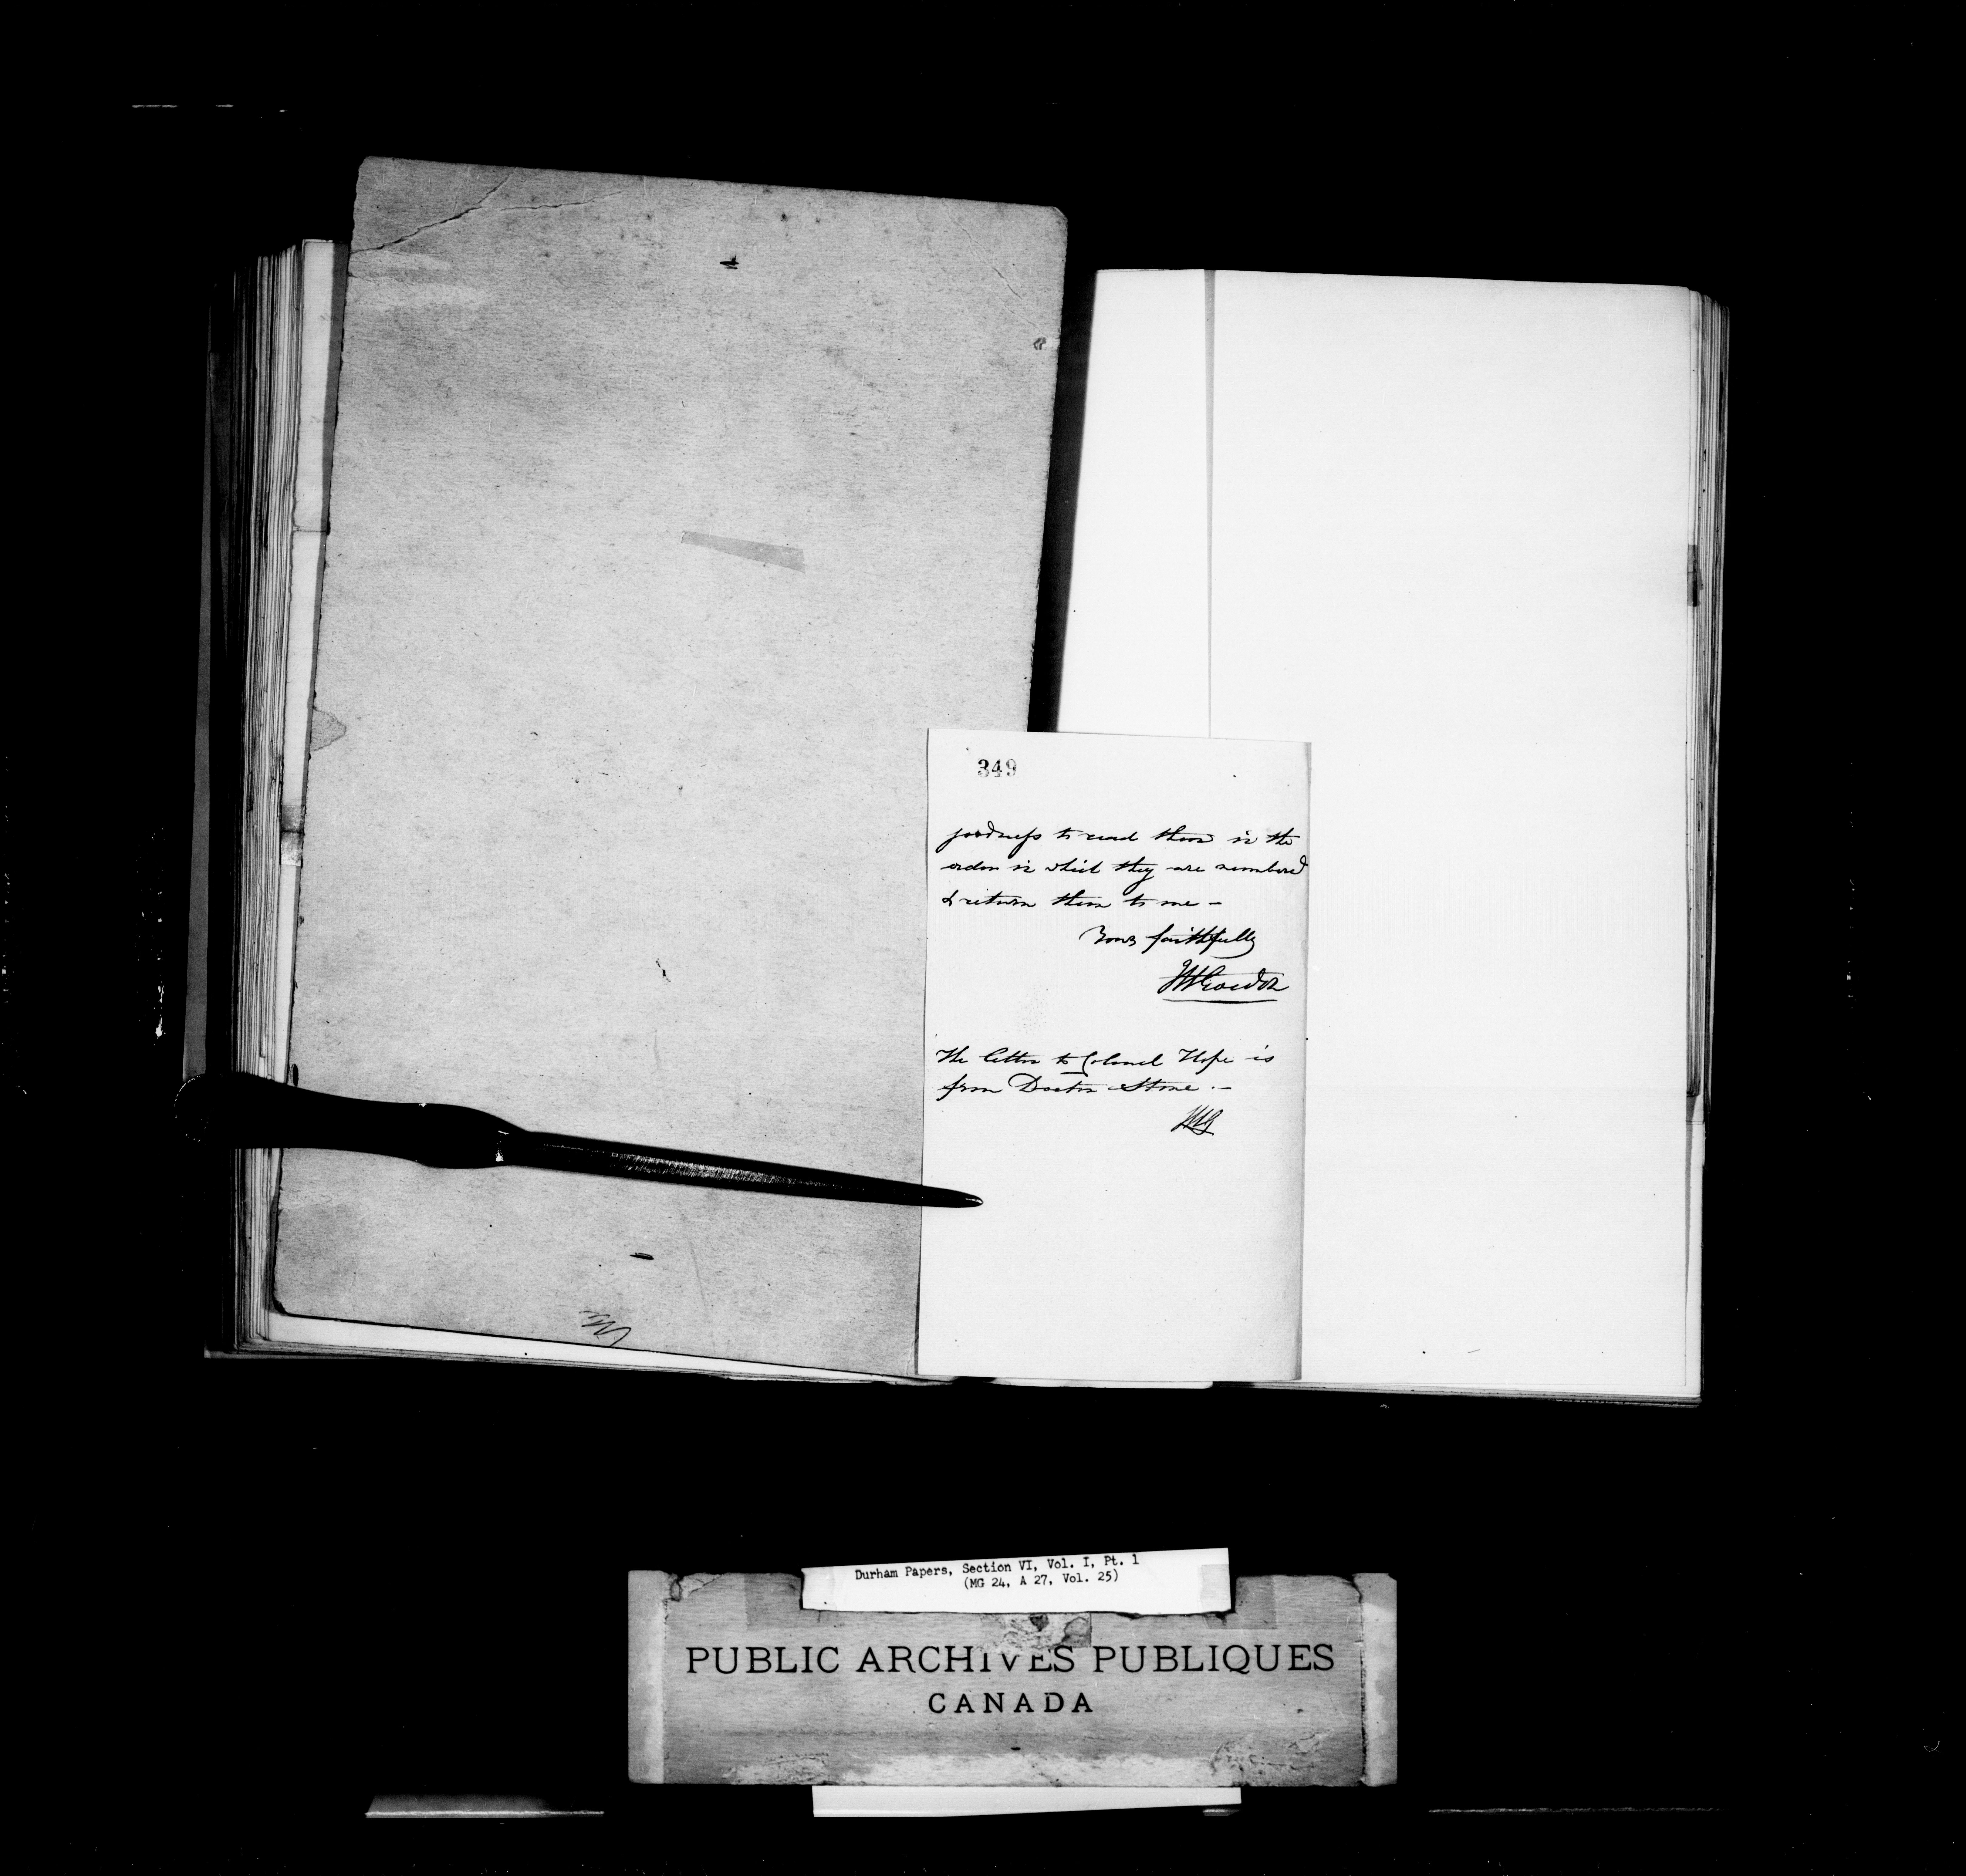 349
goodness to read them in the
order in which they are numbered
& return them to me –
Yours faithfully
The letter to Colonel Hope is
from Doctor Stone. –
Durham Papers, Section VI, Vol. I, Pt. 1
(MG 24, A 27, Vol. 25)
PUBLIC ARCHIVES PUBLIQUES
CANADA